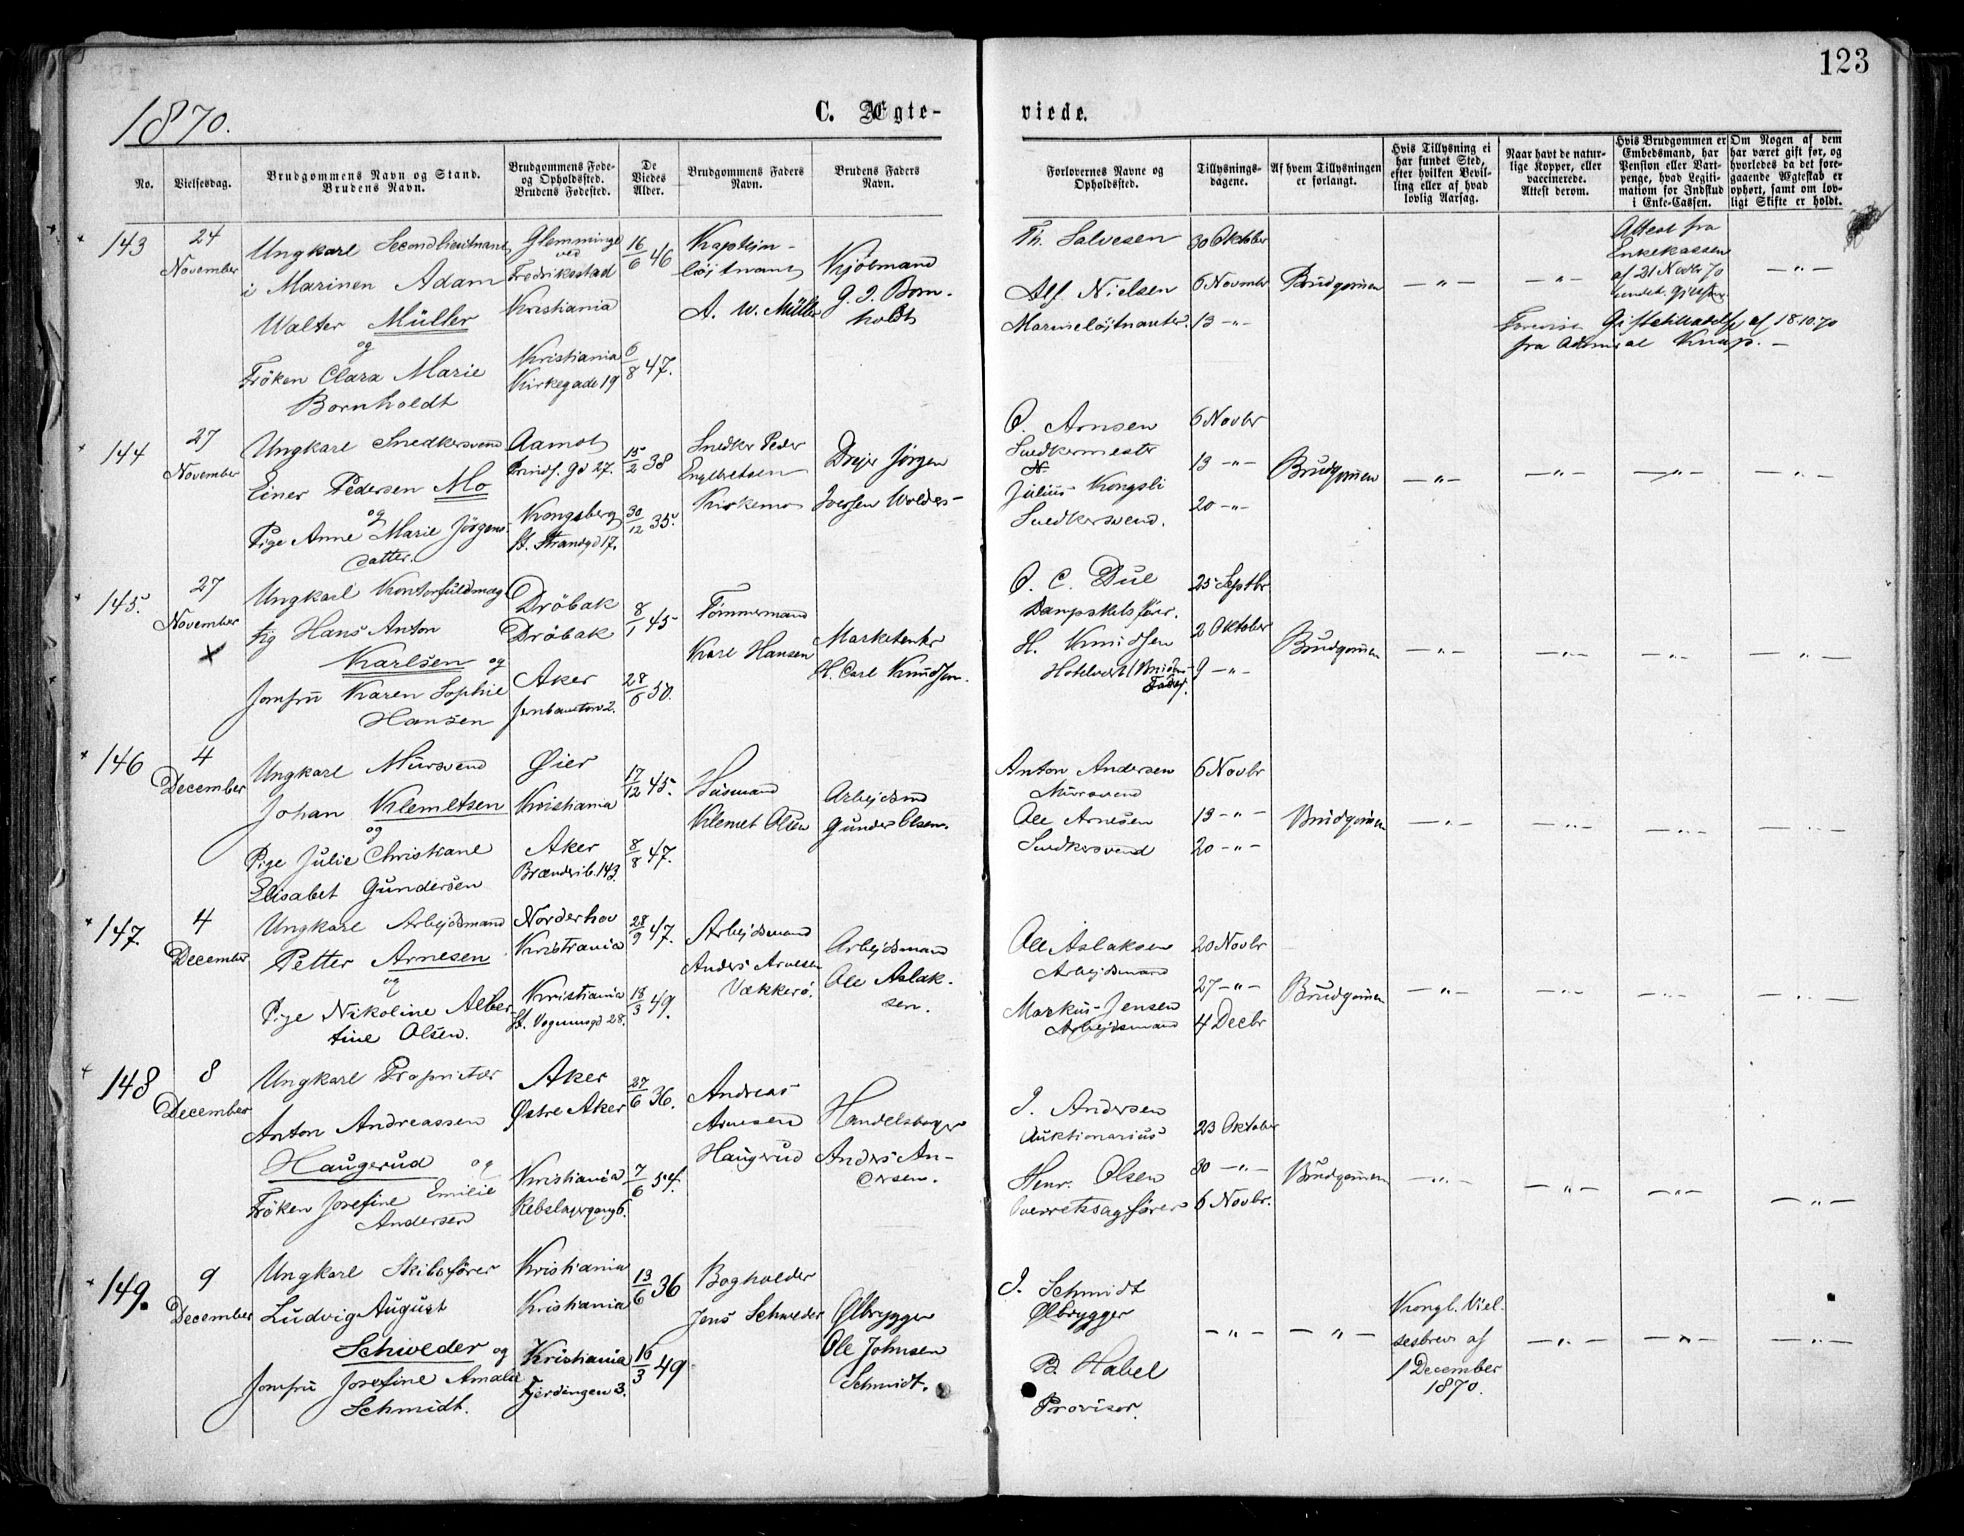 123
1870.
C. Ægte-
viede.
No.
Vielsesdag.
Brudgommens Navn og Stand.
Brudens Navn.
Brudgommens Føde-
og Opholdssted.
Brudens Fødested.
De
Viedes
Alder.
Brudgommens Faders
Navn.
Brudens Faders
Navn.
Forlovernes Navne og
Opholdssted.
Tillysnings-
dagene.
Af hvem Tillysningen
er forlangt.
Hvis Tillysning ei
har fundet Sted,
efter hvilken Bevil-
ling eller af hvad
lovlig Aarsag.
Naar havt de natur-
lige Kopper, eller
vaccinerede.
Attest derom.
Hvis Brudgommen er
Embedsmand, har
Pension eller Vart-
penge, hvad Legiti-
mation for Indskud
i Enke-Cassen.
Om Nogen af dem
har været gift før, og
hvorledes da det fore-
gaaende Ægteskab er
ophørt, samt om lov-
ligt Skifte er holdt.
143
24
November
Ungkarl Secondlieutnant
i Marinen Adam
Walter Müller
og
Frøken Clara Marie
Bornholdt
Glemminge
ved
Fredrikstad
Kristiania
Kristiania
Kirkegade 19
16/6 46
6/8 47.
Kaptein-
løjtnant
A. W. Müller
Kjøbmand
G. I. Born-
holdt
Th. Salvesen
Alf. Nielsen
Marineløjtnanter.
30 Oktober
6 Novembr
13 -„-
Brudgommen
-„-
-„-
Attest fra
Enkekassen
af 21 Novbr 70
-„-
Giftetilladelse af 18.10.70
fra Admiral Knap. -
144
27
November
Ungkarl Snedkersvend
Einer Pedersen Mo
og
Pige Anne Marie Jörgens-
datter.
Aamot
Prinds. Gd 27.
Kongsberg
St. Strandgd 17.
15/2 38
30/12 35.
Snedker Peder
Engebretsen
Kirkemo
Drejer Jørgen
Iversen Wolders-
O. Arnsen
Snedkermester
Julius Kongsli
Snedkersvend.
6 Novbr
13 -„-
20 -„-
Brudgommen
-„-
-„-
-„-
-„-
145.
27
November
Ungkarl Kontorfuldmæg-
tig Hans Anton
Karlsen og
Jomfru Karen Sophie
Hansen
Dröbak
Dröbak
Aker
Jernbanetorv 2.
8/1 45
28/6 50.
Tömmermand
Karl Hansen
Marketenter
H. Carl Knudsen.
O. C. Due
Dampskibsfører.
H. Knudsen
Hotelvert (Brudens
Fader).
25 Septbr
2 Oktober
9 -„-
Brudgommen
-„-
-„-
-„-
-„-
146
4
December
Ungkarl Mursvend
Johan Klemetsen
og
Pige Julie Christiane
Elisabet Gundersen
Øier
Kristiania
Aker
Brænderib. 143.
17/12 45.
8/8 47.
Husmand
Klemet Olsen
Arbejdsmd
Gunder Olsen.
Anton Andersen
Mursvend
Ole Arnesen
Snedkersvend
6 Novbr
13 -„-
20 -„-
Brudgommen
-„-
-„-
-„-
-„-
147.
4
December
Ungkarl Arbejdsmand
Petter Arnesen
og
Pige Nikoline Alber-
tine Olsen.
Norderhov
Kristiania
Kristiania
St. Vognmsgd 28.
28/9 47.
18/3 49.
Arbejdsmand
Anders Arnesen
Vækkerö.
Arbejdsmand
Ole Aslak-
sen.
Ole Aslaksen
Arbejdsmand
Markus Jensen
Arbejdsmand
20 Novbr
27 -„-
4 Decbr
Brudgommen
-„-
-„-
-„-
-„-
148
8
December
Ungkarl Proprietær
Anton Andreassen
Haugerud og
Frøken Josefine Emilie
Andersen
Aker
Østre Aker
Kristiania
Rebslagergang 6.
27/6 36.
7/6 54.
Andreas
Arnesen
Haugerud
Handelsborger
Anders An-
dersen.
J. Andersen
Auktionarius
Henr. Olsen
Overretsagfører
23 Oktober
30 -„-
6 Novbr.
Brudgommen
-„-
-„-
-„-
-„-
149.
9
December
Ungkarl Skibsfører
Ludvig August
Schweder og
Jomfru Josefine Amalie
Schmidt.
Kristiania
Kristiania
Kristiania
Fjerdingen 3.
13/6 36
16/3 49
Bogholder
Jens Schweder
Ølbrygger
Ole Johnsen
Schmidt.
J. Schmidt
Ølbrygger
P. Habel
Provisor.
-„-
-„-
Kongl. Viel-
sesbrev af
1 December
1870.
-„-
-„-
-„-